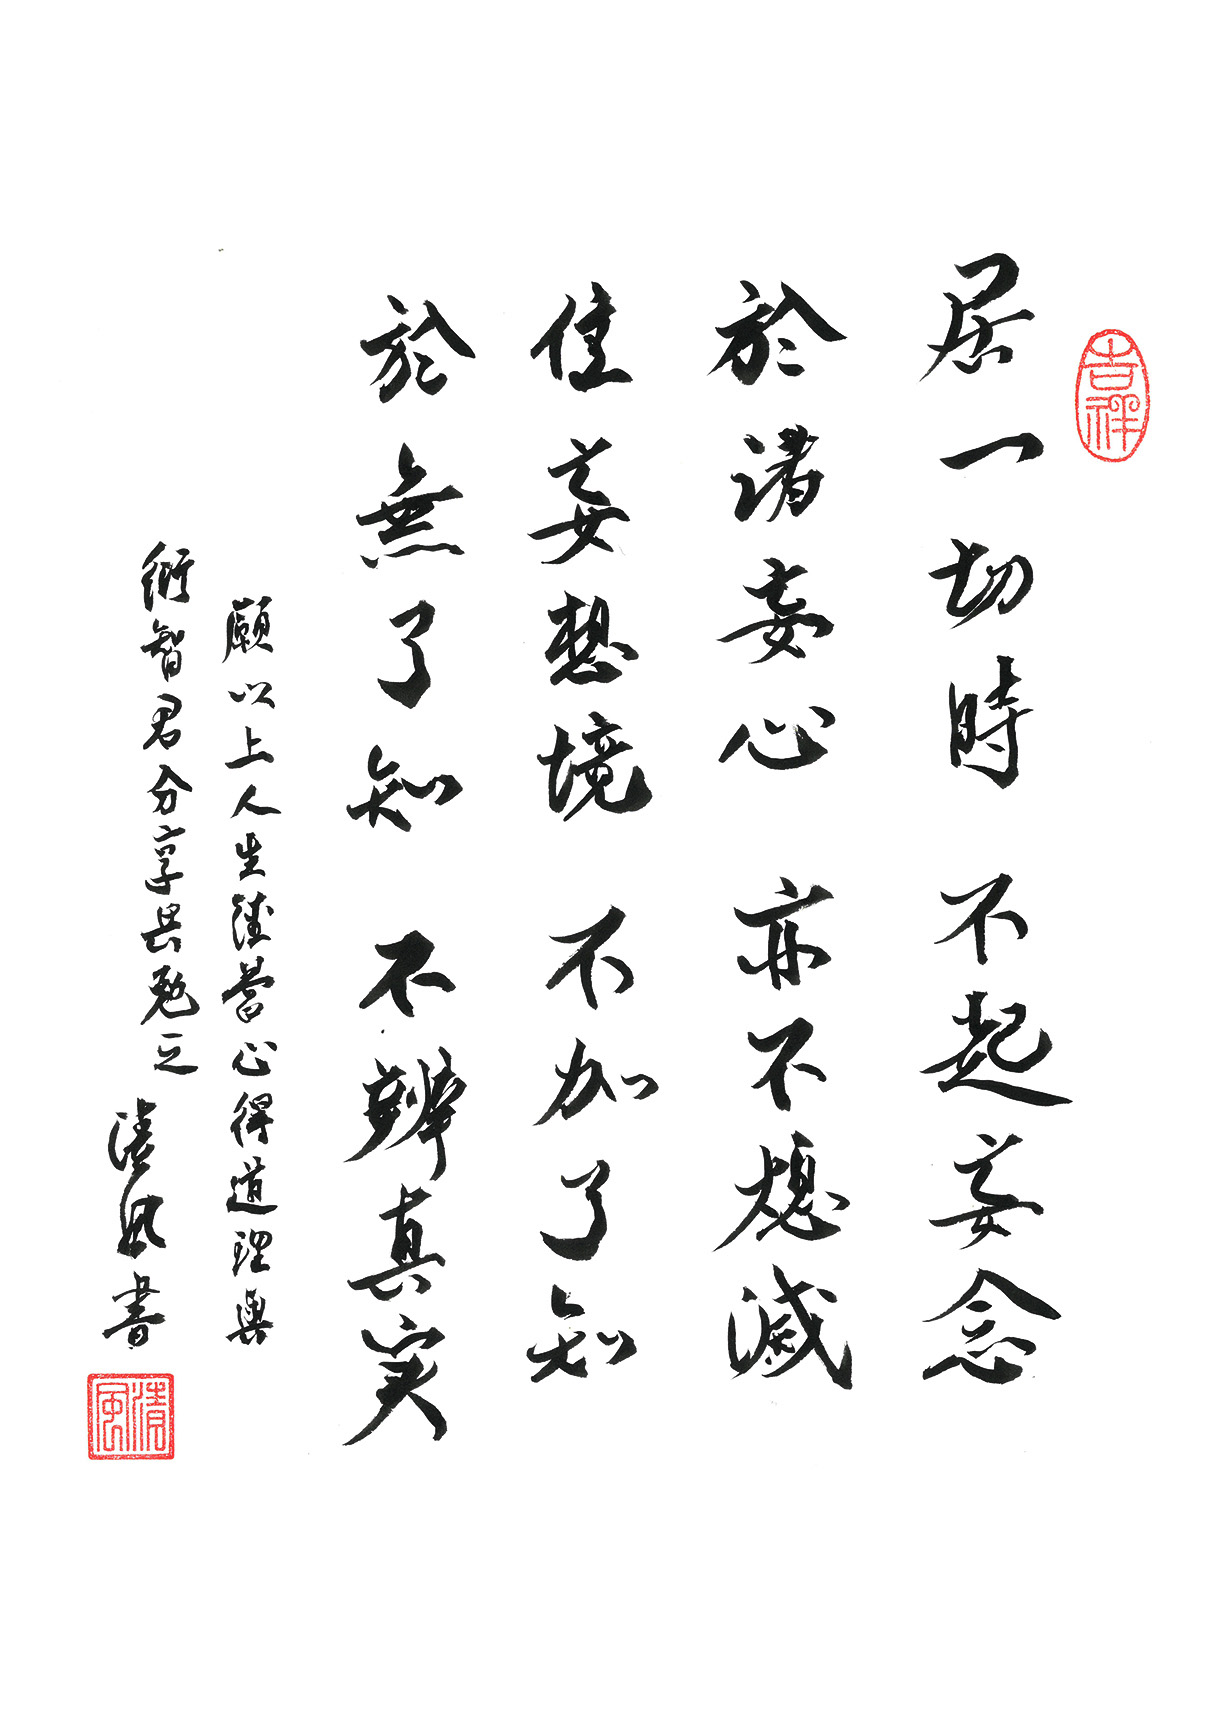 吉祥
居一切時 不起妄念
於諸妄心 亦不熄滅
住妄想境 不加了知
於無了知 不辨真实
願以上人生体嘗心得道理與
衍智君分享共勉之
清風書
清風